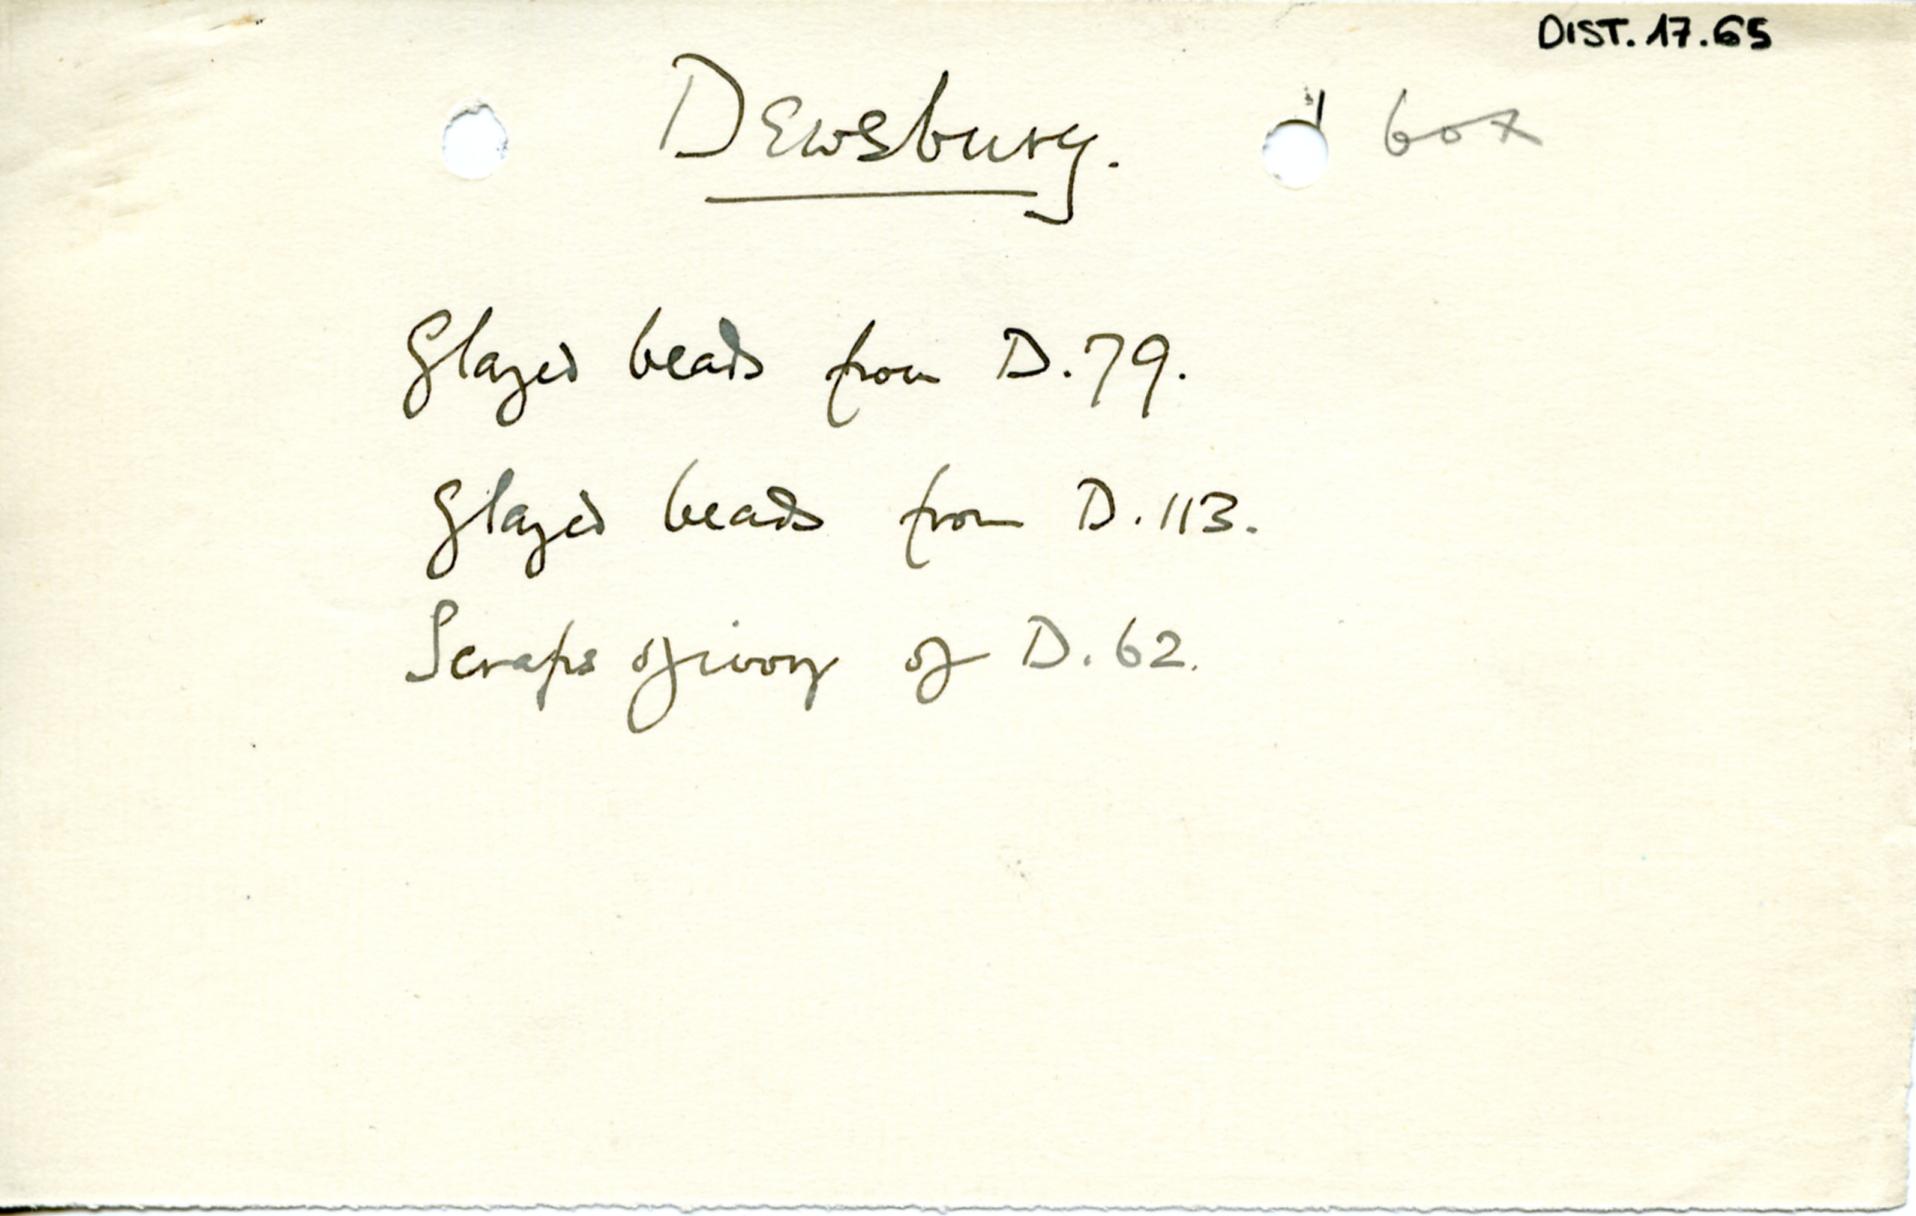 DIST.17.65
Dewsbury. 1 box
Glazed beads from D.79.
Glazed beads from D.113.
Scraps of ivory of D.62.